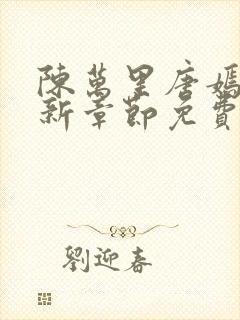 陳萬里唐嫣
新章節免費
劉迎春